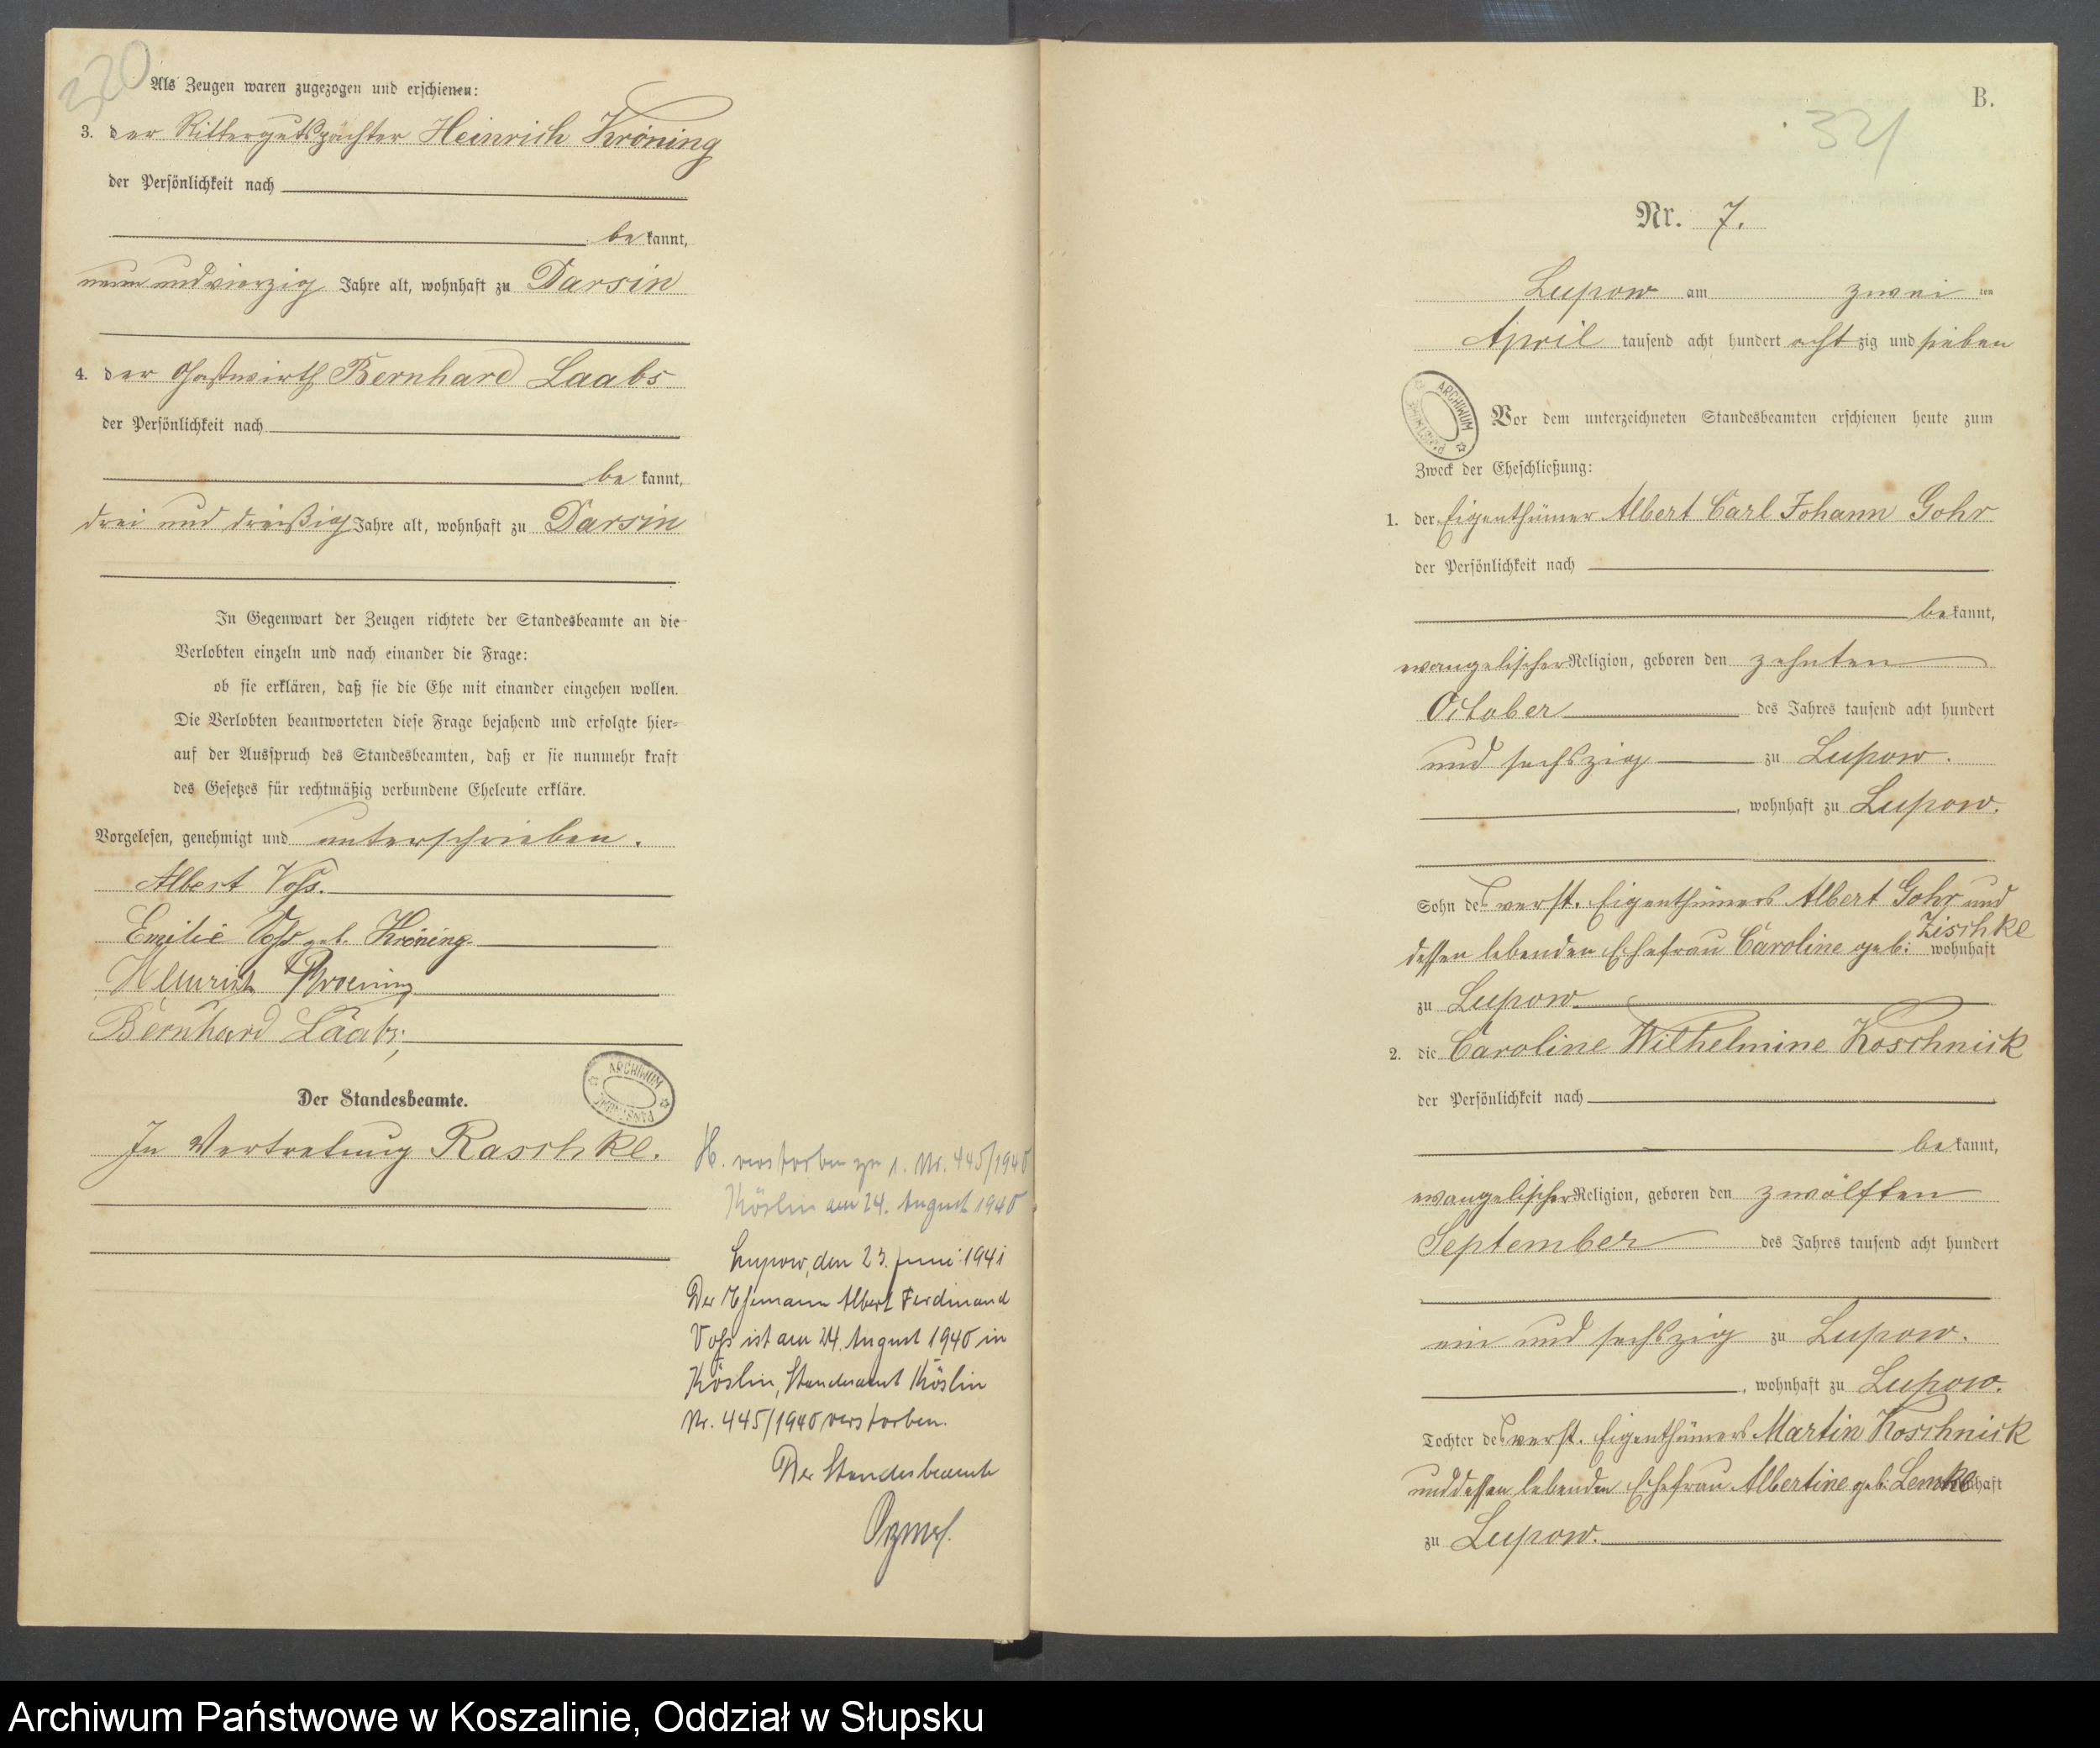 320
Als Zeugen waren zugezogen und erschienen:
3. der Rittergutspächter Heinrich Kröning
der Persönlichkeit nach
bekannt,
neun und vierzig Jahre alt, wohnhaft zu Darsin
4. der Gastwirth Bernhard Laabs
der Persönlichkeit nach
bekannt,
drei und dreißig Jahre alt, wohnhaft zu Darsin
In Gegenwart der Zeugen richtete der Standesbeamte an die
Verlobten einzeln und nach einander die Frage:
ob sie erklären, daß sie die Ehe mit einander eingehen wollen.
Die Verlobten beantworteten diese Frage bejahend und erfolgte hier-
auf der Ausspruch des Standesbeamten, daß er sie nunmehr kraft
des Gesetzes für rechtmäßig verbundene Eheleute erkläre.
Vorgelesen, genehmigt und unterschrieben.
Albert Voß.
Emilie Voß geb. Kröning
Heinrich Kroening
Bernhard Laabs
ARCHIWUM PAŃSTWOWE
Der Standesbeamte.
In Vertretung Raschke.
H. verstorben zu 1. Nr. 445/1940
Köslin am 24. August 1940
Lupow, den 23. Juni 1941
Der Ehemann Albert Ferdinand
Voß ist am 24. August 1940 in
Köslin, Standesamt Köslin
Nr. 445/1940 verstorben.
Der Standesbeamte
B.
321
Nr. 7.
Lupow am zweiten
April tausend acht hundert achtzig und sieben
ARCHIWUM PAŃSTWOWE
Vor dem unterzeichneten Standesbeamten erschienen heute zum
Zweck der Eheschließung:
1. der Eigenthümer Albert Carl Johann Gohr
der Persönlichkeit nach
bekannt,
evangelischer Religion, geboren den zehnten
October des Jahres tausend acht hundert
und sechszig zu Lupow.
, wohnhaft zu Lupow.
Sohn des verst. Eigenthümers Albert Gohr und
dessen lebenden Ehefrau Caroline geb: Zischke wohnhaft
zu Lupow
2. die Caroline Wilhelmine Koschnick
der Persönlichkeit nach
bekannt,
evangelischer Religion, geboren den zwölften
September des Jahres tausend acht hundert
ein und sechszig zu Lupow.
, wohnhaft zu Lupow.
Tochter des verst. Eigenthümers Martin Koschnick
und dessen lebenden Ehefrau Albertine geb: Lemke wohnhaft
zu Lupow.
Archiwum Państwowe w Koszalinie, Oddział w Słupsku